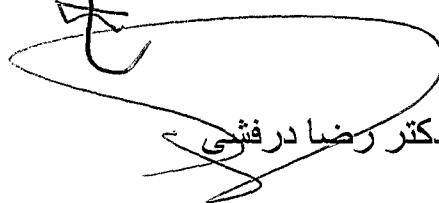 دکتر رضا درفشی